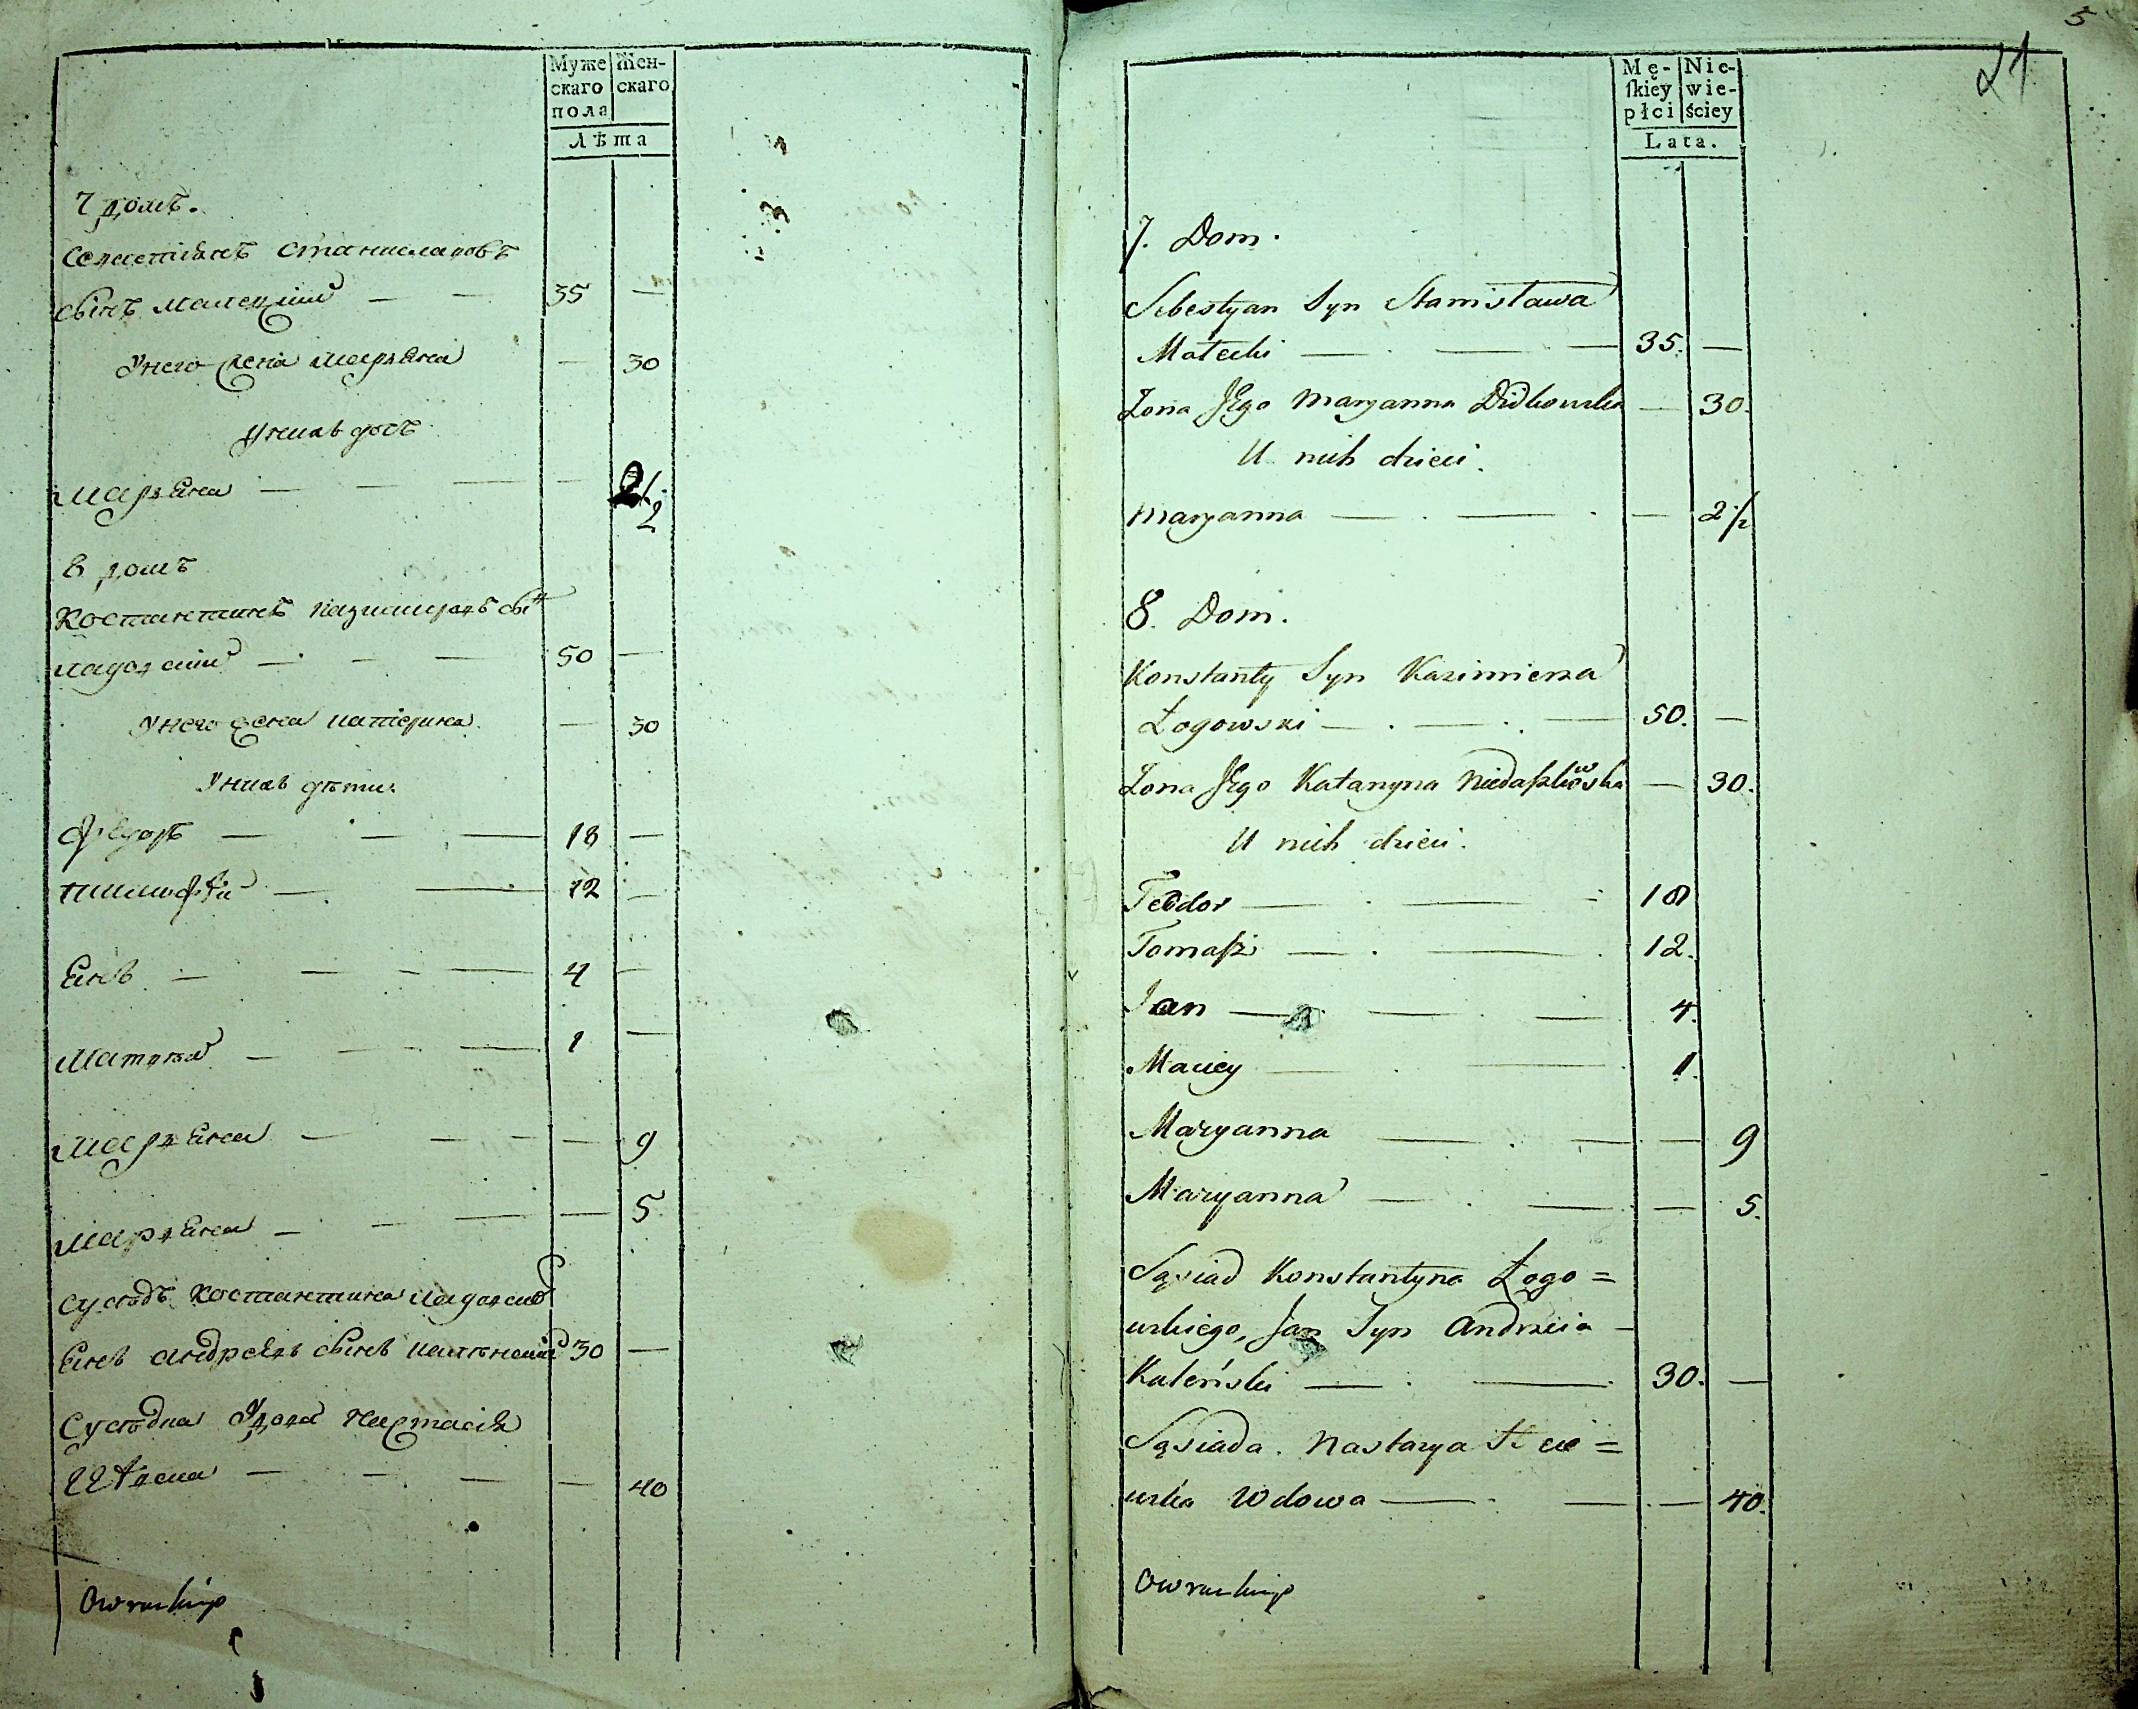 Муже
скаго
пола
Жен-
скаго
Лѣта
7 домъ.
Севастіянъ Станиславовъ
сынъ Малецкій — — 35 —
У него жена Марьяна — 30
У нихъ дочь
Марьяна — — — — 2 1/2
8 домъ
Костантинъ Казимировъ сынъ
Лаговскій — — — 50 —
У него жена Катерина — 30
У нихъ дѣти
Ѳедоръ — — — 18 —
Тимофѣй — — 12 —
Янъ — — — — 4 —
Матвѣй — — — 1 —
Марьяна — — — — 9
Марьяна — — — — 5
Сусѣдъ Костантина Лаговск
Янъ Андреевъ сынъ 30 —
Сусѣдка Удова Настасія
— — — — 40
Owruckiego
5
21
Mę-
ſkiey
płci
Nie-
wie-
ściey
Lata.
7. Dom.
Sebestyan Syn Stanisława
Małecki — — — 35. —
Żona Jego Maryanna Didkowska — 30.
U nich dzieci.
Maryanna — — — 2 1/2
8. Dom.
Konstanty Syn Kazimierza
Łogowski — — — 50. —
Żona Jego Katarzyna Niedaszkowska — 30.
U nich dzieci.
Teodor — — 18
Tomaſz — — 12.
Jan — — — 4.
Maciey — — 1.
Maryanna — — — 9
Maryanna — — — 5.
Sąsiad Konstantyna Łogo=
wskiego, Jan Syn Andrzeia —
Kaleński — — 30. —
Sąsiada. Nastazya
wska Wdowa — — — 40.
Owruckiego